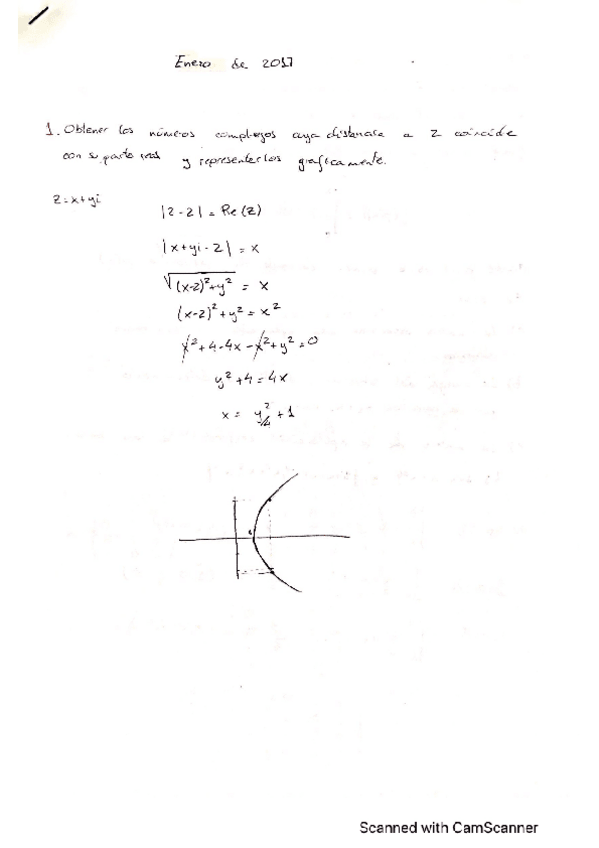 Enero de 2017
1. Obtener los números complejos cuya distancia a 2 coincide
con su parte real y representarlos graficamente.
z = x+yi
|z-2| = Re(z)
|x+yi-2| = x
√(x-2)²+y² = x
(x-2)²+y² = x²
x²+4-4x-x²+y²=0
y²+4=4x
x = y²/4 + 1
Scanned with CamScanner